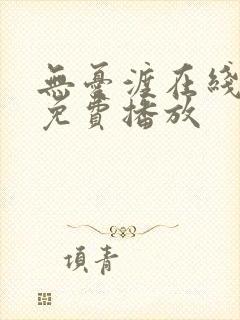 無憂渡在綫
免費播放
項青